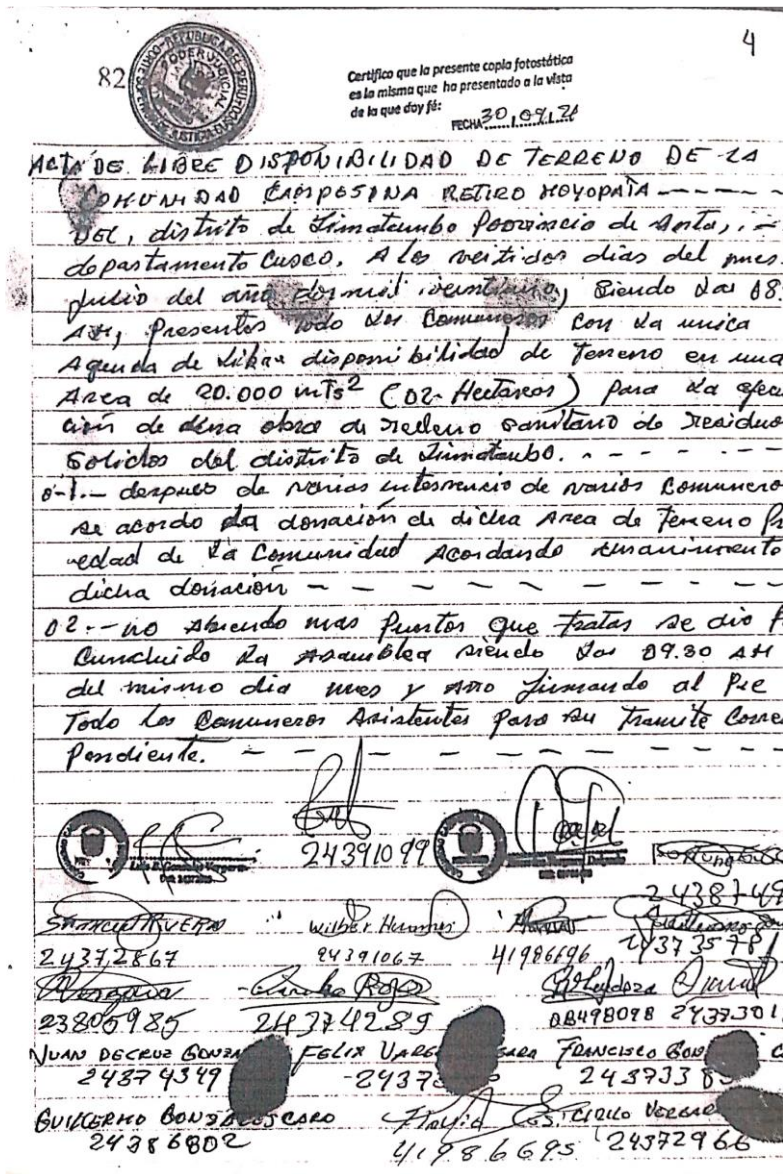 4
82
REPUBLICA DEL PERU
PODER JUDICIAL
Certifico que la presente copia fotostática
es la misma que ha presentado a la vista
de la que doy fé:
FECHA 30, 09, 21
ACTA DE LIBRE DISPONIBILIDAD DE TERRENO DE LA
COMUNIDAD CAMPESINA RETIRO MOYOPATA -----
DEL, distrito de Limatambo Provincia de Anta, . -
departamento Cusco. A los veitidos dias del mes.
Julio del año dos mil ventiuno, Siendo las 08
AM, Presentes todo los Comuneros con la unica
Agenda de Libre disponibilidad de Terreno en una
Area de 20.000 mTs² (02- Hectareas) para la ejecu
ción de dicha obra de relleno sanitario de Residuo
Solidos del distrito de Limatambo. - - - - - -
0-1.- despues de varias intervencio de varios Comunero
se acordo la donación de dicha Area de Terreno Pro
vedad de la Comunidad Acordando
dicha donación - - - - - - - - - -
02.- no Abiendo mas Puntos que Tratas se dio P
Cuncluido la Asamblea siendo las 09.30 AM
del mismo dia mes y Año firmando al Pie
Todo los Comuneros Asistentes para su Tramite Corres
Pendiente. - - - - - - - -
24391099
2438749
24372867
Wilber Huaman
24391067
41986696
24373578
Vergara
23805985
24374289
24373301
JUAN DECRUZ GONZA
24374349
FELIX VARG
2437
FRANCISCO GON
2437338
GUILLERMO GONZALES CARO
24386802
41986695
CIRILO VERGAR
24372966